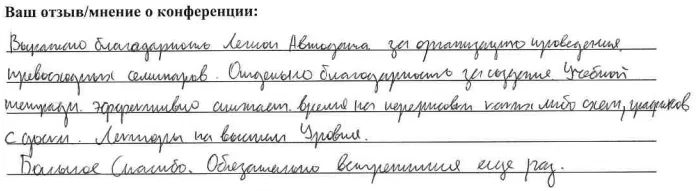 Ваш отзыв/мнение о конференции:
Выражаю благодарность Легион Автодата за организацию проведения
превосходных семинаров. Отдельно благодарность за создание Учебной
тетради. эффективно снижает время на перерисовки каких либо схем, графиков
с доски. Лекторы на высшем Уровне.
Большое Спасибо. Обязательно встретимся еще раз.